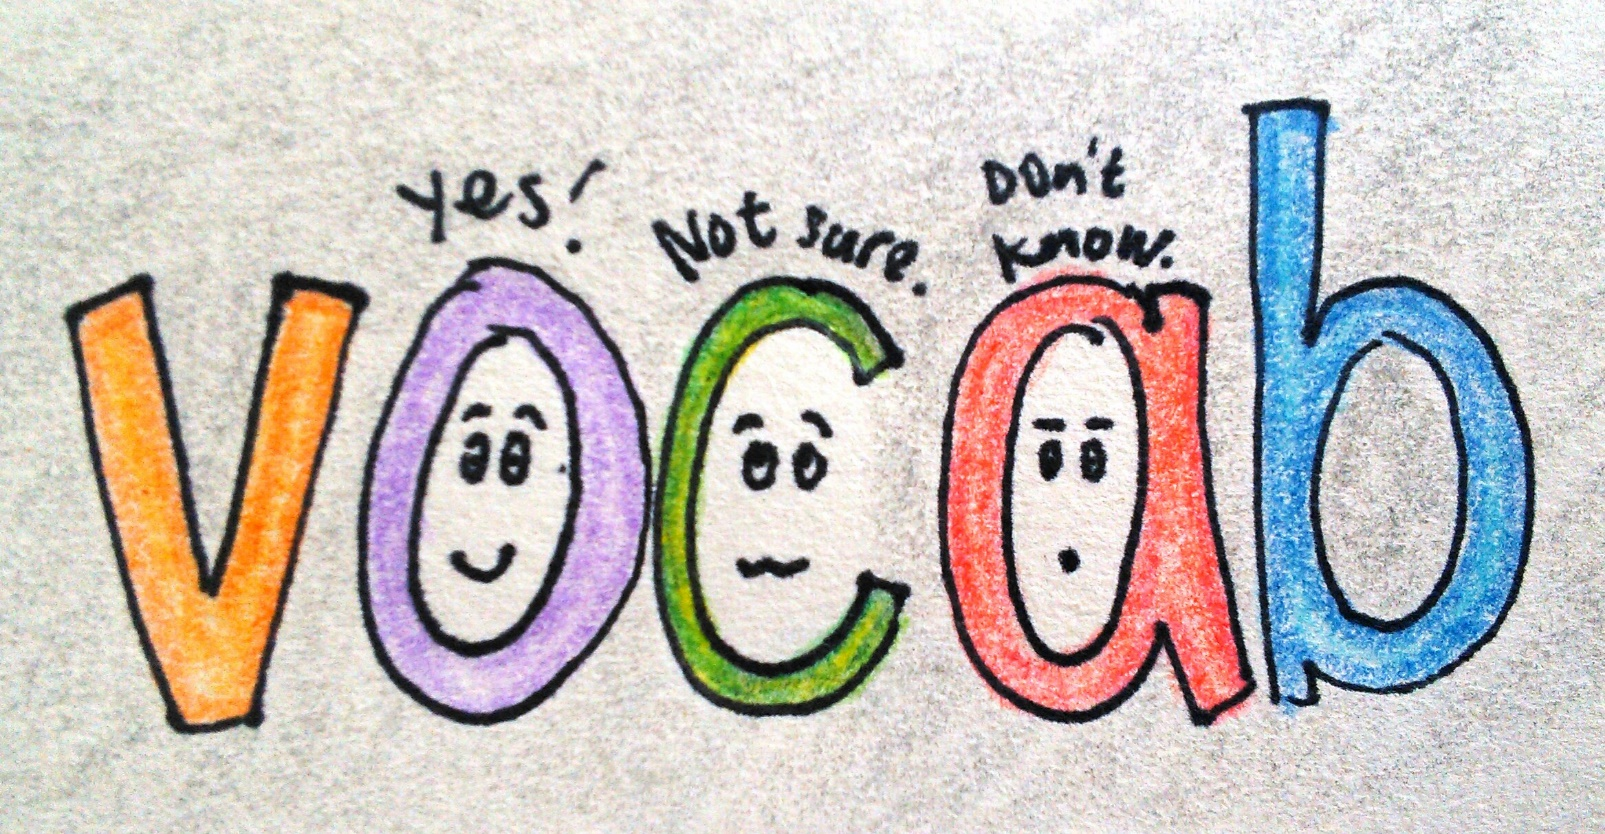 yes!
Not sure.
Don't
know.
vocab